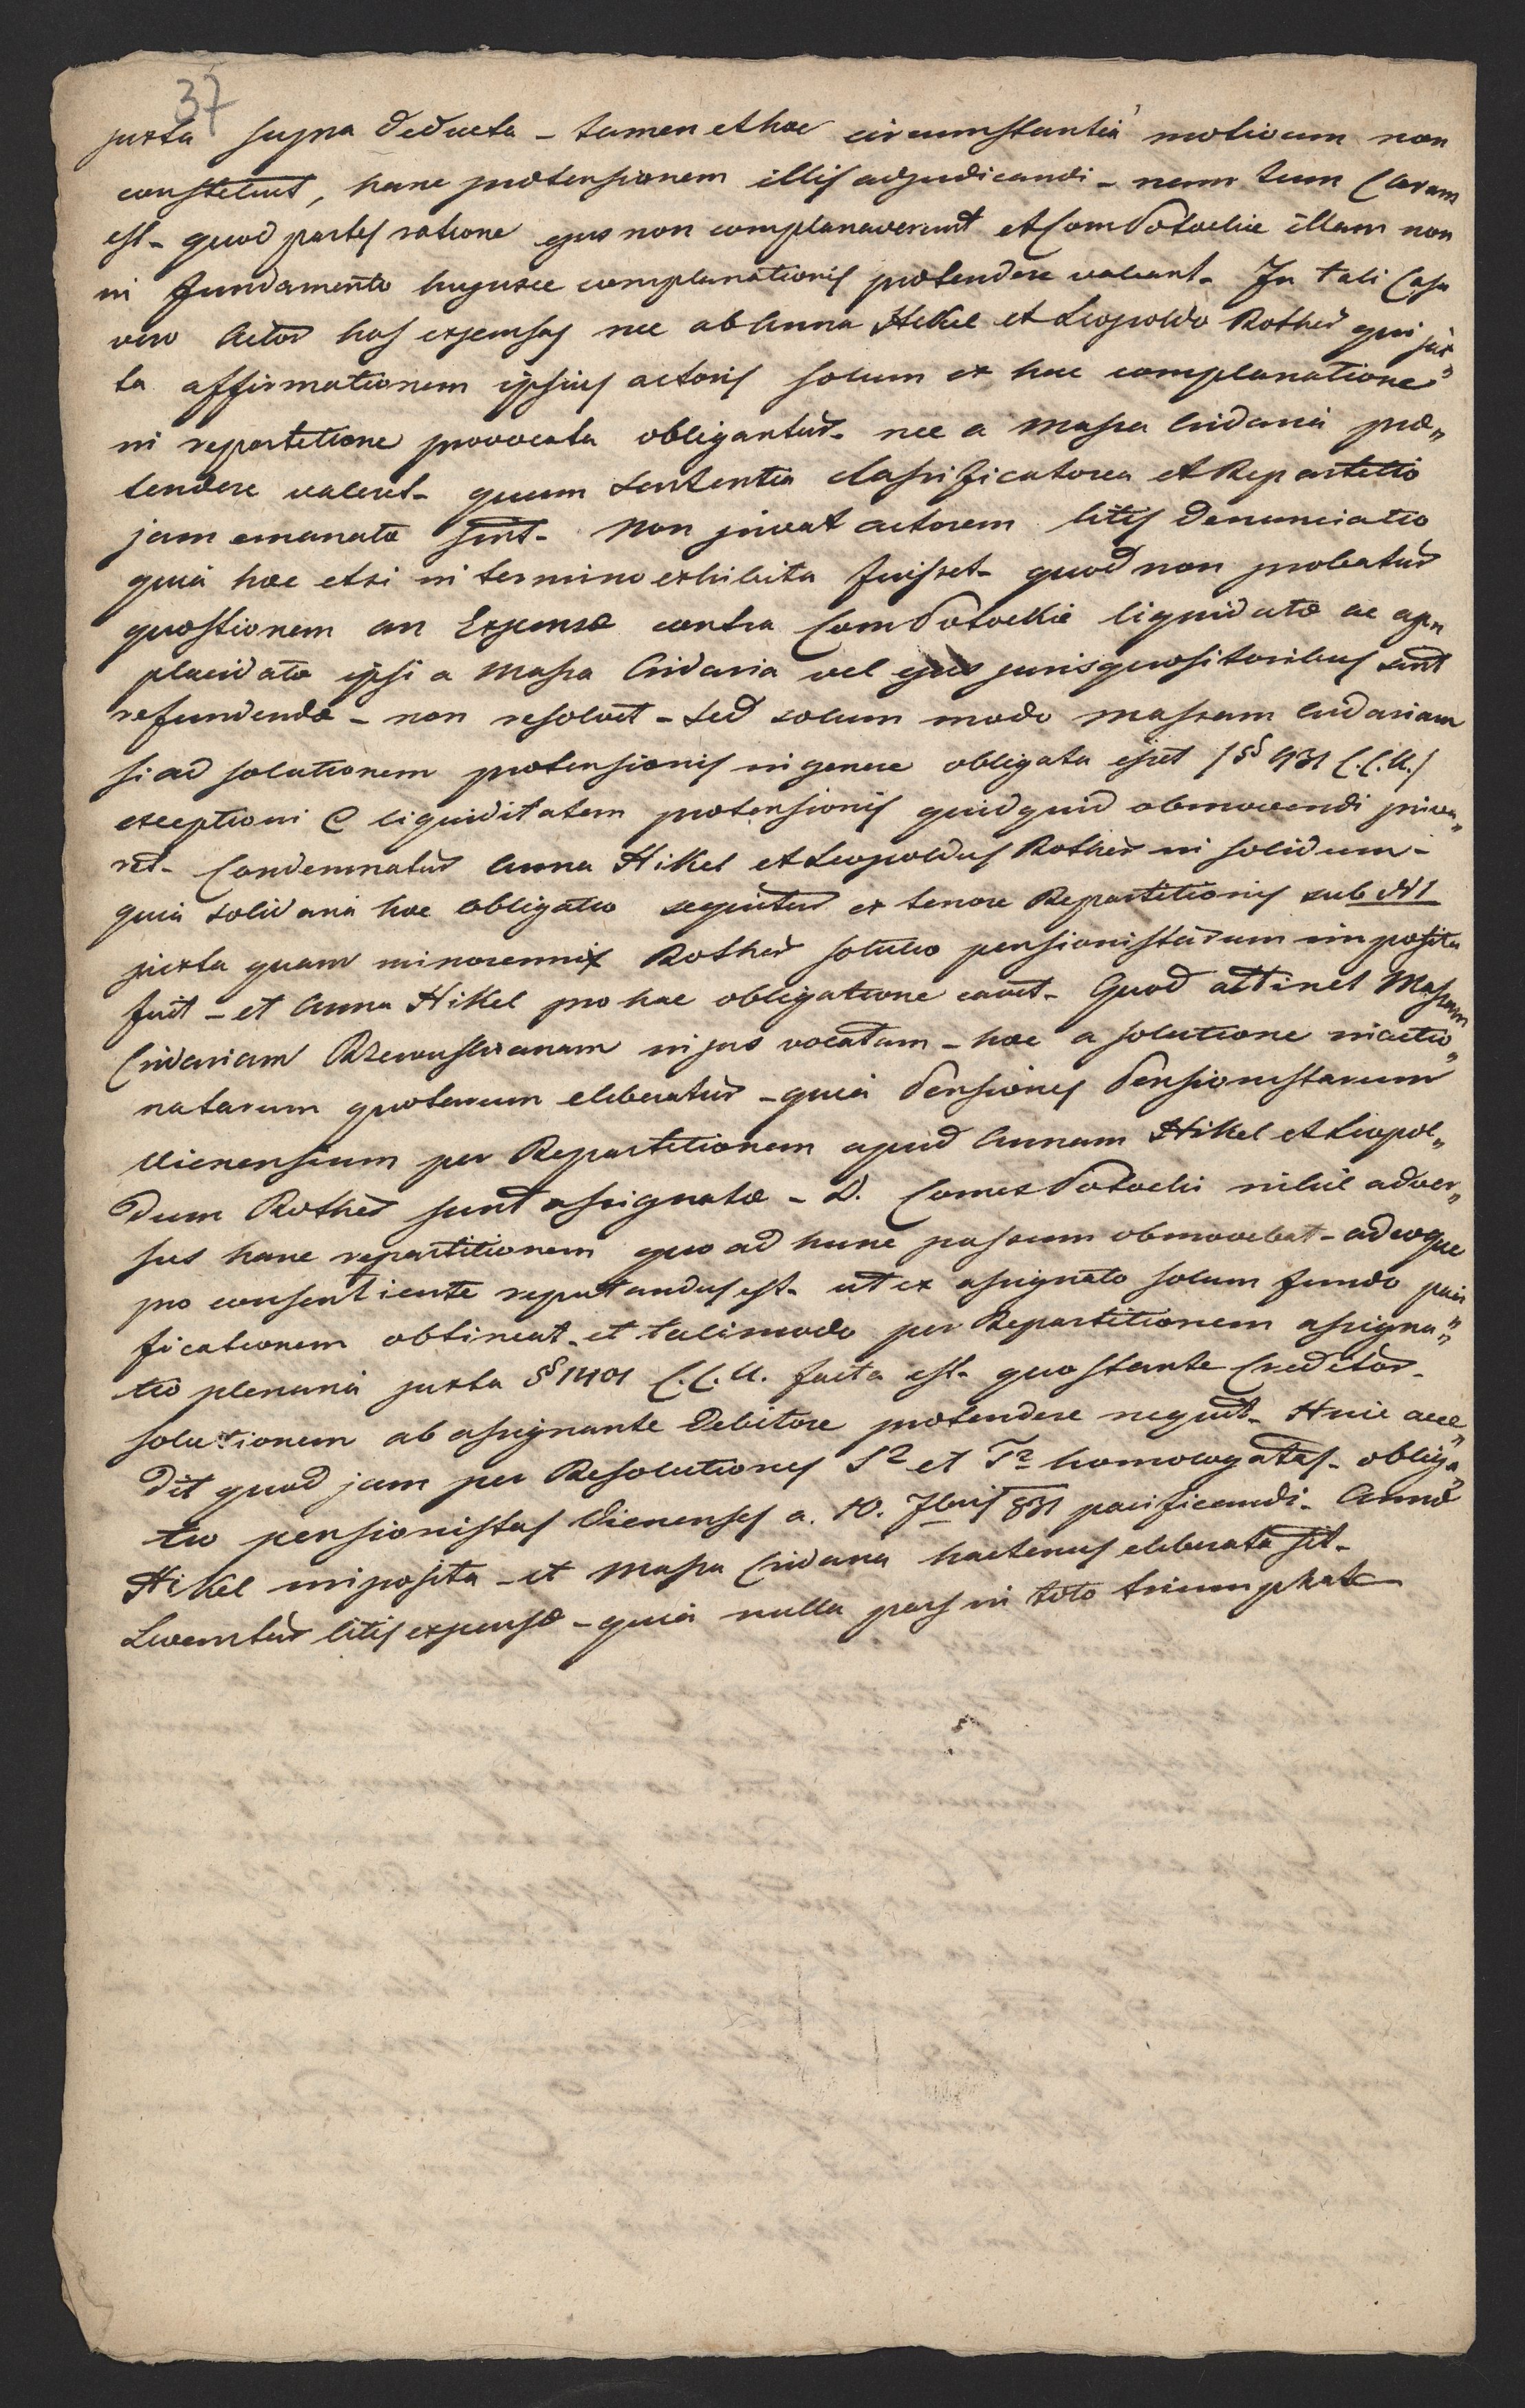 37
juxta supra deducta – tamen et hæc circumstantia motivum non
constituit, hanc prætensionem illis adjudicandi – nam tum clarum
est – quod partes ratione ejus non complanaverunt et Com Potockie illam non
in fundamento hujusce complanationis prætendere valeant. In tali Casu
vero Actor has expensas nec ab Anna Hikel et Leopoldo Rother qui jux„
ta affirmationem ipsius actoris solum ex hac complanatione
in repartitione provocata obligantur – nec a Massa Cridaria præ„
tendere valeret – quum Sententia classificatoria et Repartitio
jam emanatæ sint. Non juvat actorem litis denunciatio
quia hæc etsi in termino exhibita fuisset – quod non probatur
quæstionem an Expensæ contra Com Potockie liquidatæ ac ap„
placidatæ ipsi a Massa Cridaria vel ejus jurisquæsitoribus sunt
refundendæ – non resolvit – sed solum modo massam cridariam
si ad solutionem prætensionis in genere obligata esset /§ 931 C.C.U./
exceptioni C liquiditatem prætensionis quidquid obmovendi priva„
ret. Condemnatur Anna Hikel et Leopoldus Rother in solidum –
quia solidaria hæc obligatio sequitur ex tenore Repartitionis sub N 1
juxta quam minorennis Rother solutio pensionistarum imposita
fuit – et Anna Hikel pro hac obligatione cavit. Quod attinet Massam
Cridariam Rzewuskianam in jus vocatam – hæc a solutione inactio„
natarum quotarum eliberatur – quia Pensiones Pensionistarum
Vienensium per Repartitionem apud Annam Hikel et Leopol„
dum Rother sunt assignatæ – D. Comes Potocki nihil adver„
sus hanc repartitionem quo ad hunc passum obmovebat – adeoque
pro consentiente reputandus est – ut ex assignato solum fundo paci
ficationem obtineat – et tali modo per Repartitionem assigna„
tio plenaria juxta § 1401 C.C.U. facta est – quo stante Creditor
solutionem ab assignante debitore prætendere nequit. Huic acce„
dit quod jam per Resolutiones S² et T² homologatas – obliga„
tio pensionistas Vienenses a. 10. 7bris 831 pacificandi – Annæ
Hikel imposita – et Massa Cridaria hactenus eliberata sit.
Levantur litis expensæ – quia nulla pars in toto triumphat